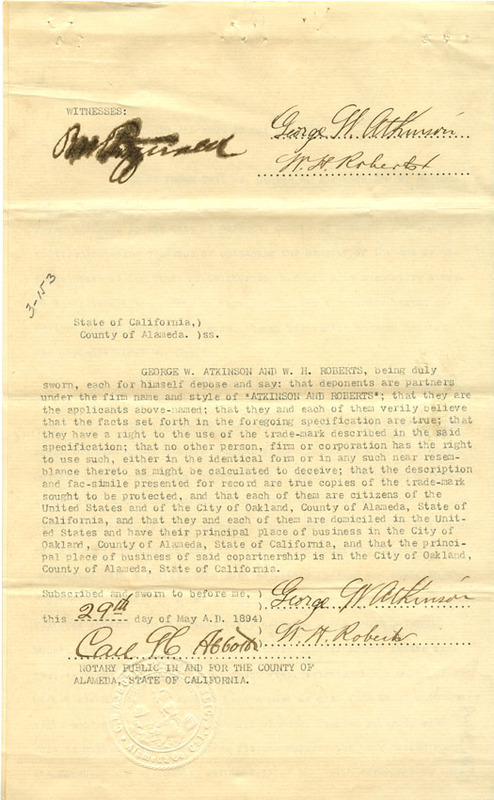 WITNESSES:
George W. Atkinson
W. H. Roberts
3-153
State of California,)
County of Alameda. )ss.
GEORGE W. ATKINSON AND W. H. ROBERTS, being duly
sworn, each for himself depose and say: that deponents are partners
under the firm name and style of "ATKINSON AND ROBERTS"; that they are
the applicants above-named; that they and each of them verily believe
that the facts set forth in the foregoing specification are true; that
they have a right to the use of the trade-mark described in the said
specification; that no other person, firm or corporation has the right
to use such, either in the identical form or in any such near resem-
blance thereto as might be calculated to deceive; that the description
and fac-simile presented for record are true copies of the trade-mark
sought to be protected, and that each of them are citizens of the
United States and of the City of Oakland, County of Alameda, State of
California, and that they and each of them are domiciled in the Unit-
ed States and have their principal place of business in the City of
Oakland, County of Alameda, State of California, and that the princi-
pal place of business of said copartnership is in the City of Oakland,
County of Alameda, State of California.
Subscribed and sworn to before me, )
George W. Atkinson
this 29th day of May A.D. 1894)
W. H. Roberts
NOTARY PUBLIC IN AND FOR THE COUNTY OF
ALAMEDA, STATE OF CALIFORNIA.